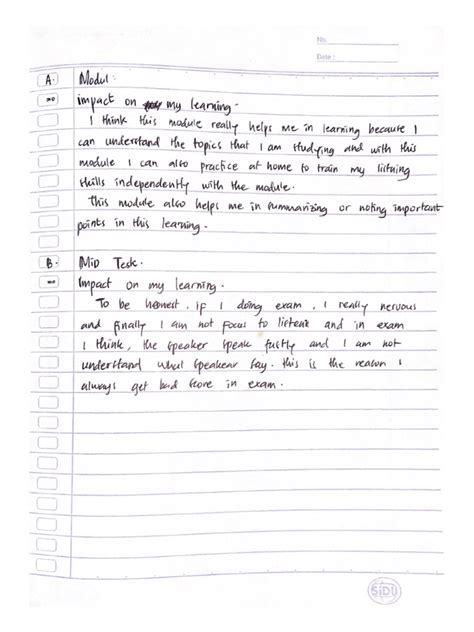 No.
Date :
A. Modul :
impact on my learning.
I think this module really helps me in learning because I
can understand the topics that I am studying and with this
module I can also practice at home to train my listning
skills independently with the module.
this module also helps me in summarizing or noting important
points in this learning.
B. MiD Test.
Impact on my learning.
To be honest, if I doing exam, I really nervous
and finally I am not focus to listenin and in exam
I think, the speaker speak fastly and I am not
understand what speakear say. this is the reason I
always get bad score in exam.
SiDU